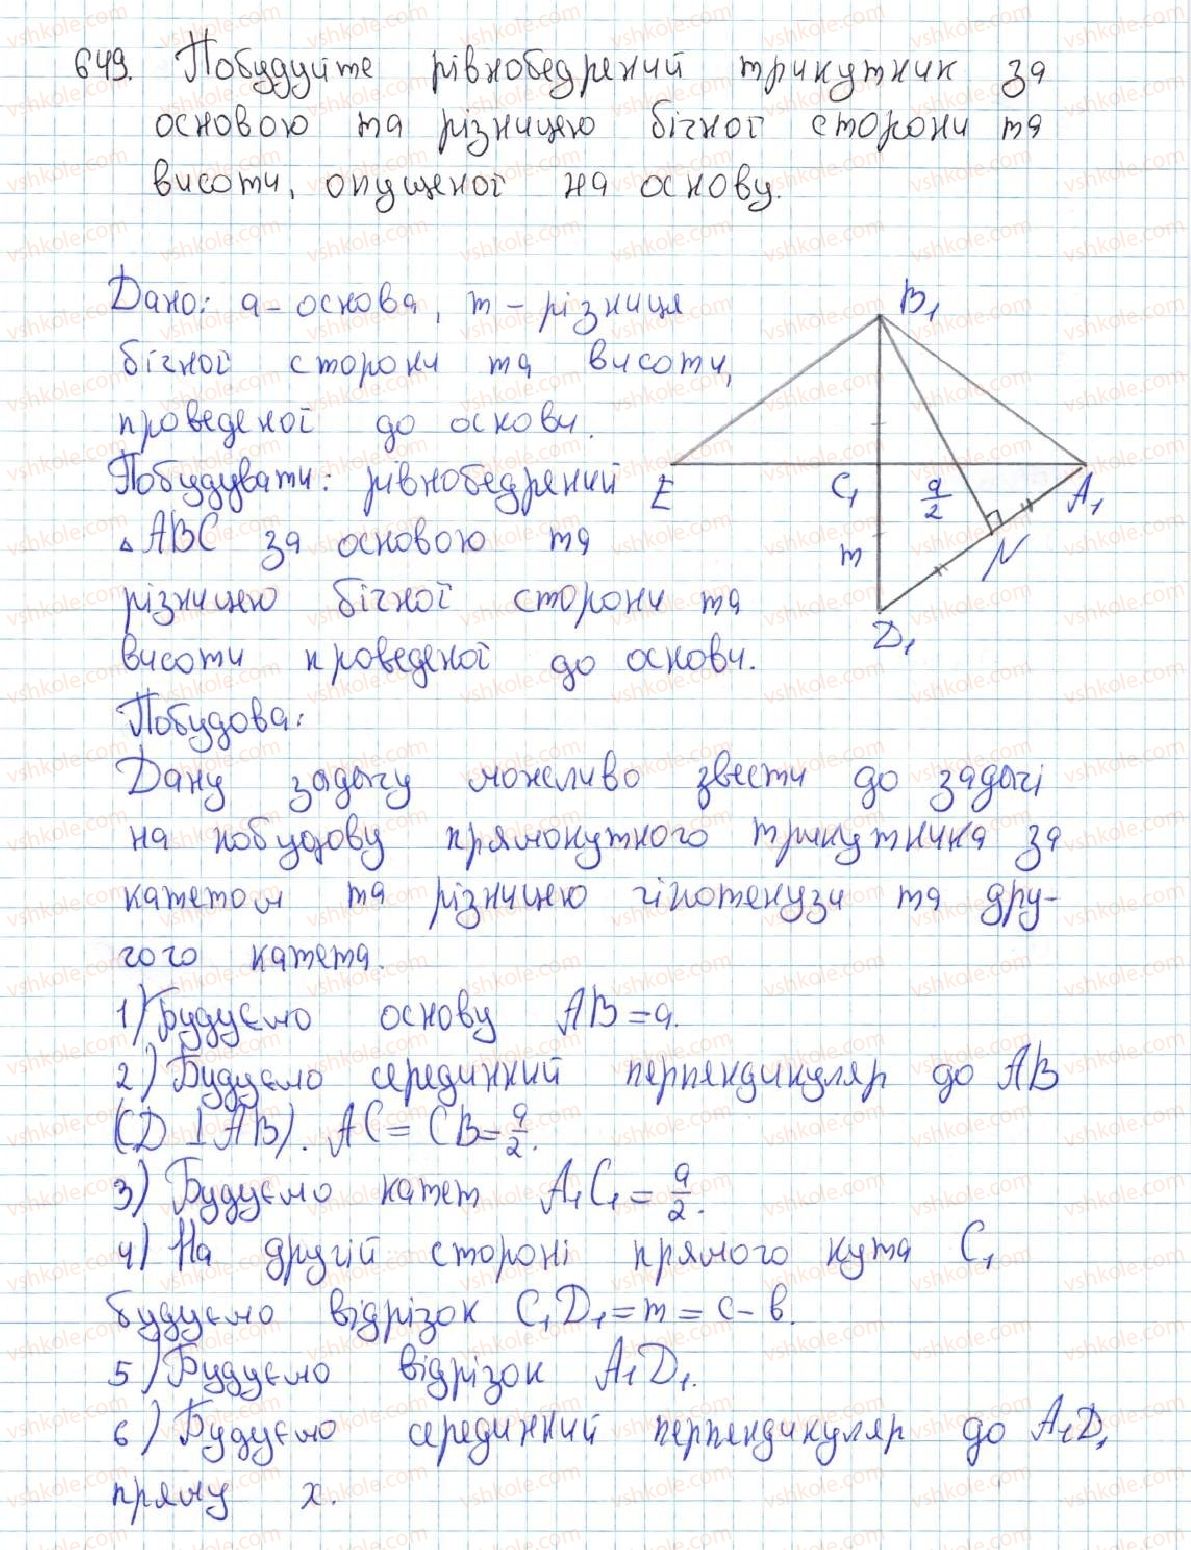 649. Побудуйте рівнобедрений трикутник за
основою та різницею бічної сторони та
висоти, опущеної на основу.
Дано: a - основа, m - різниця
бічної сторони та висоти,
проведеної до основи.
Побудувати: рівнобедрений
△ABC за основою та
різницею бічної сторони та
висоти проведеної до основи.
B₁
E
C₁
a/2
A₁
m
N
D₁
Побудова:
Дану задачу можливо звести до задачі
на побудову прямокутного трикутника за
катетом та різницею гіпотенузи та дру-
гого катета.
1) Будуємо основу AB = a.
2) Будуємо серединний перпендикуляр до AB
(CD ⊥ AB). AC = CB = a/2.
3) Будуємо катет A₁C₁ = a/2.
4) На другій стороні прямого кута C₁
будуємо відрізок C₁D₁ = m = c - b.
5) Будуємо відрізок A₁D₁.
6) Будуємо серединний перпендикуляр до A₁D₁
пряму x.
vshkole.com